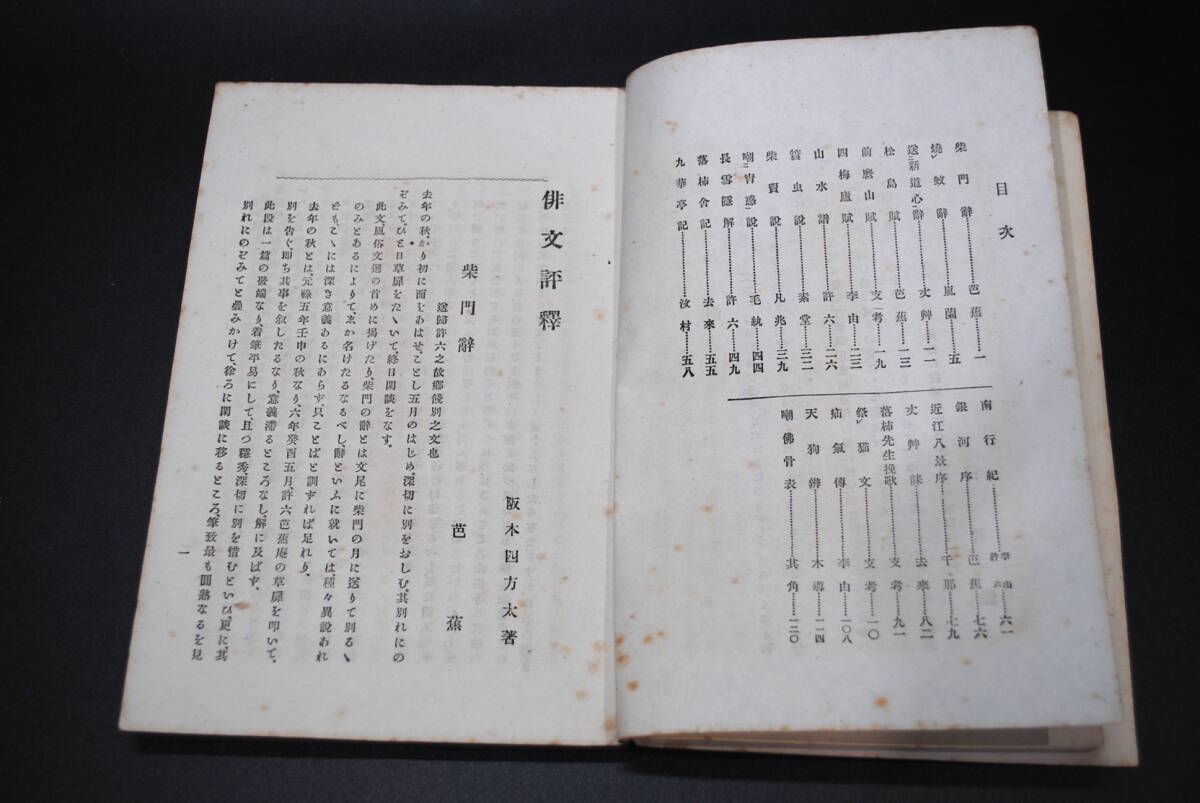 目次
柴門辭…………芭蕉…………一
燒レ蚊辭…………嵐蘭…………五
送二新道心一辭…………丈艸…………一一
松島賦…………芭蕉…………一三
前麿山賦…………支考…………一九
四梅廬賦…………李由…………二三
山水譜…………許六…………二六
簑虫說…………素堂…………三二
柴賣說…………凡兆…………三九
嘲二宵惑一說…………毛紈…………四四
長雪隱解…………許六…………四九
落柿舍記…………去來…………五五
九華亭記…………汶村…………五八
南行紀…………李由 許六…………六一
銀河序…………芭蕉…………七六
近江八景序…………千那…………七九
丈艸誄…………去來…………八二
落柿先生挽歌…………支考…………九一
祭レ猫文…………支考…………一〇
疝氣傳…………李由…………一〇八
天狗辨…………木導…………一一四
嘲佛骨表…………其角…………一二〇
俳文評釋
阪本四方太著
柴門辭
芭蕉
送歸許六之故鄉餞別之文也
去年の秋、かり初に面をあはせ、ことし五月のはじめ、深切に別をおしむ、其別れにの
ぞみて、ひと日草扉をたゝいて、終日閑談をなす。
此文風俗文選の首めに揭げたり、柴門の辭とは文尾に柴門の月に送りて別るゝ
のみとあるによりて、ゑか名けたるなるべし、辭といふに就いては、種々異說あれ
ども、こゝには深き意義あるにあらず只、ことばと訓ずれば足れり、
去年の秋とは、元祿五年壬申の秋なり、六年癸酉五月、許六芭蕉庵の草扉を叩いて、
別を告ぐ、即ち其事を敘したるなり意義滯るところなし、解に及ばず、
此段は一篇の發端なり着筆平易にして、且つ穩秀、深切に別を惜むといひ、更に、其
別れにのぞみてと疊みかけて、徐ろに閑談に移るところ、筆致最も圓熟なるを見
一